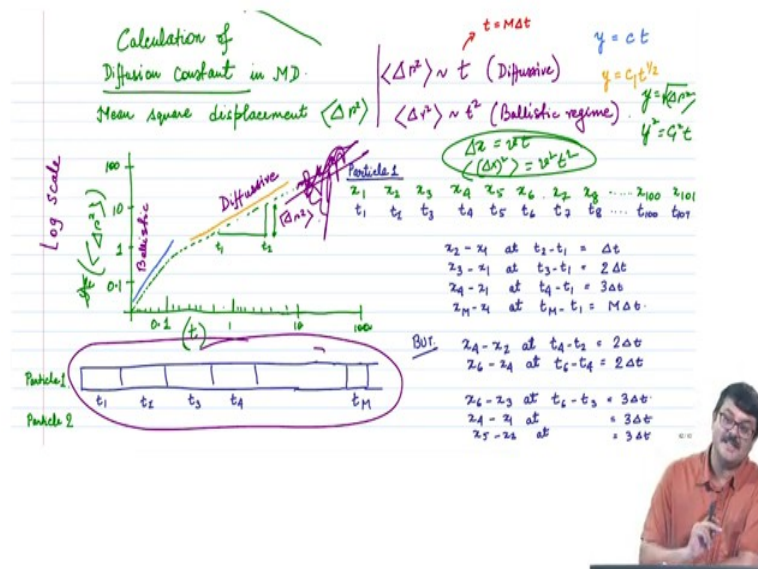 Calculation of
Diffusion Constant in MD.
Mean square displacement ⟨Δr²⟩
t = MΔt
⟨Δr²⟩ ~ t (Diffusive)
⟨Δr²⟩ ~ t² (Ballistic regime)
y = ct
y = C₁t^1/2
y = √Δr²
y² = C₁²t
Δx = vt
⟨(Δx)²⟩ = v²t²
Log scale
(⟨Δr²⟩)
100
10
1
0.1
Ballistic
Diffusive
⟨Δr²⟩
t₁ t₂
0.1 1 10 100
(t)
Particle 1
x₁ x₂ x₃ x₄ x₅ x₆ x₇ x₈ ..... x₁₀₀ x₁₀₁
t₁ t₂ t₃ t₄ t₅ t₆ t₇ t₈ .... t₁₀₀ t₁₀₁
x₂ - x₁ at t₂ - t₁ = Δt
x₃ - x₁ at t₃ - t₁ = 2Δt
x₄ - x₁ at t₄ - t₁ = 3Δt
x_M - x₁ at t_M - t₁ = MΔt.
BUT.
x₄ - x₂ at t₄ - t₂ = 2Δt
x₆ - x₄ at t₆ - t₄ = 2Δt
x₆ - x₃ at t₆ - t₃ = 3Δt
x₄ - x₁ at = 3Δt
x₅ - x₂ at = 3Δt
Particle 1
t₁ t₂ t₃ t₄ t_M
Particle 2